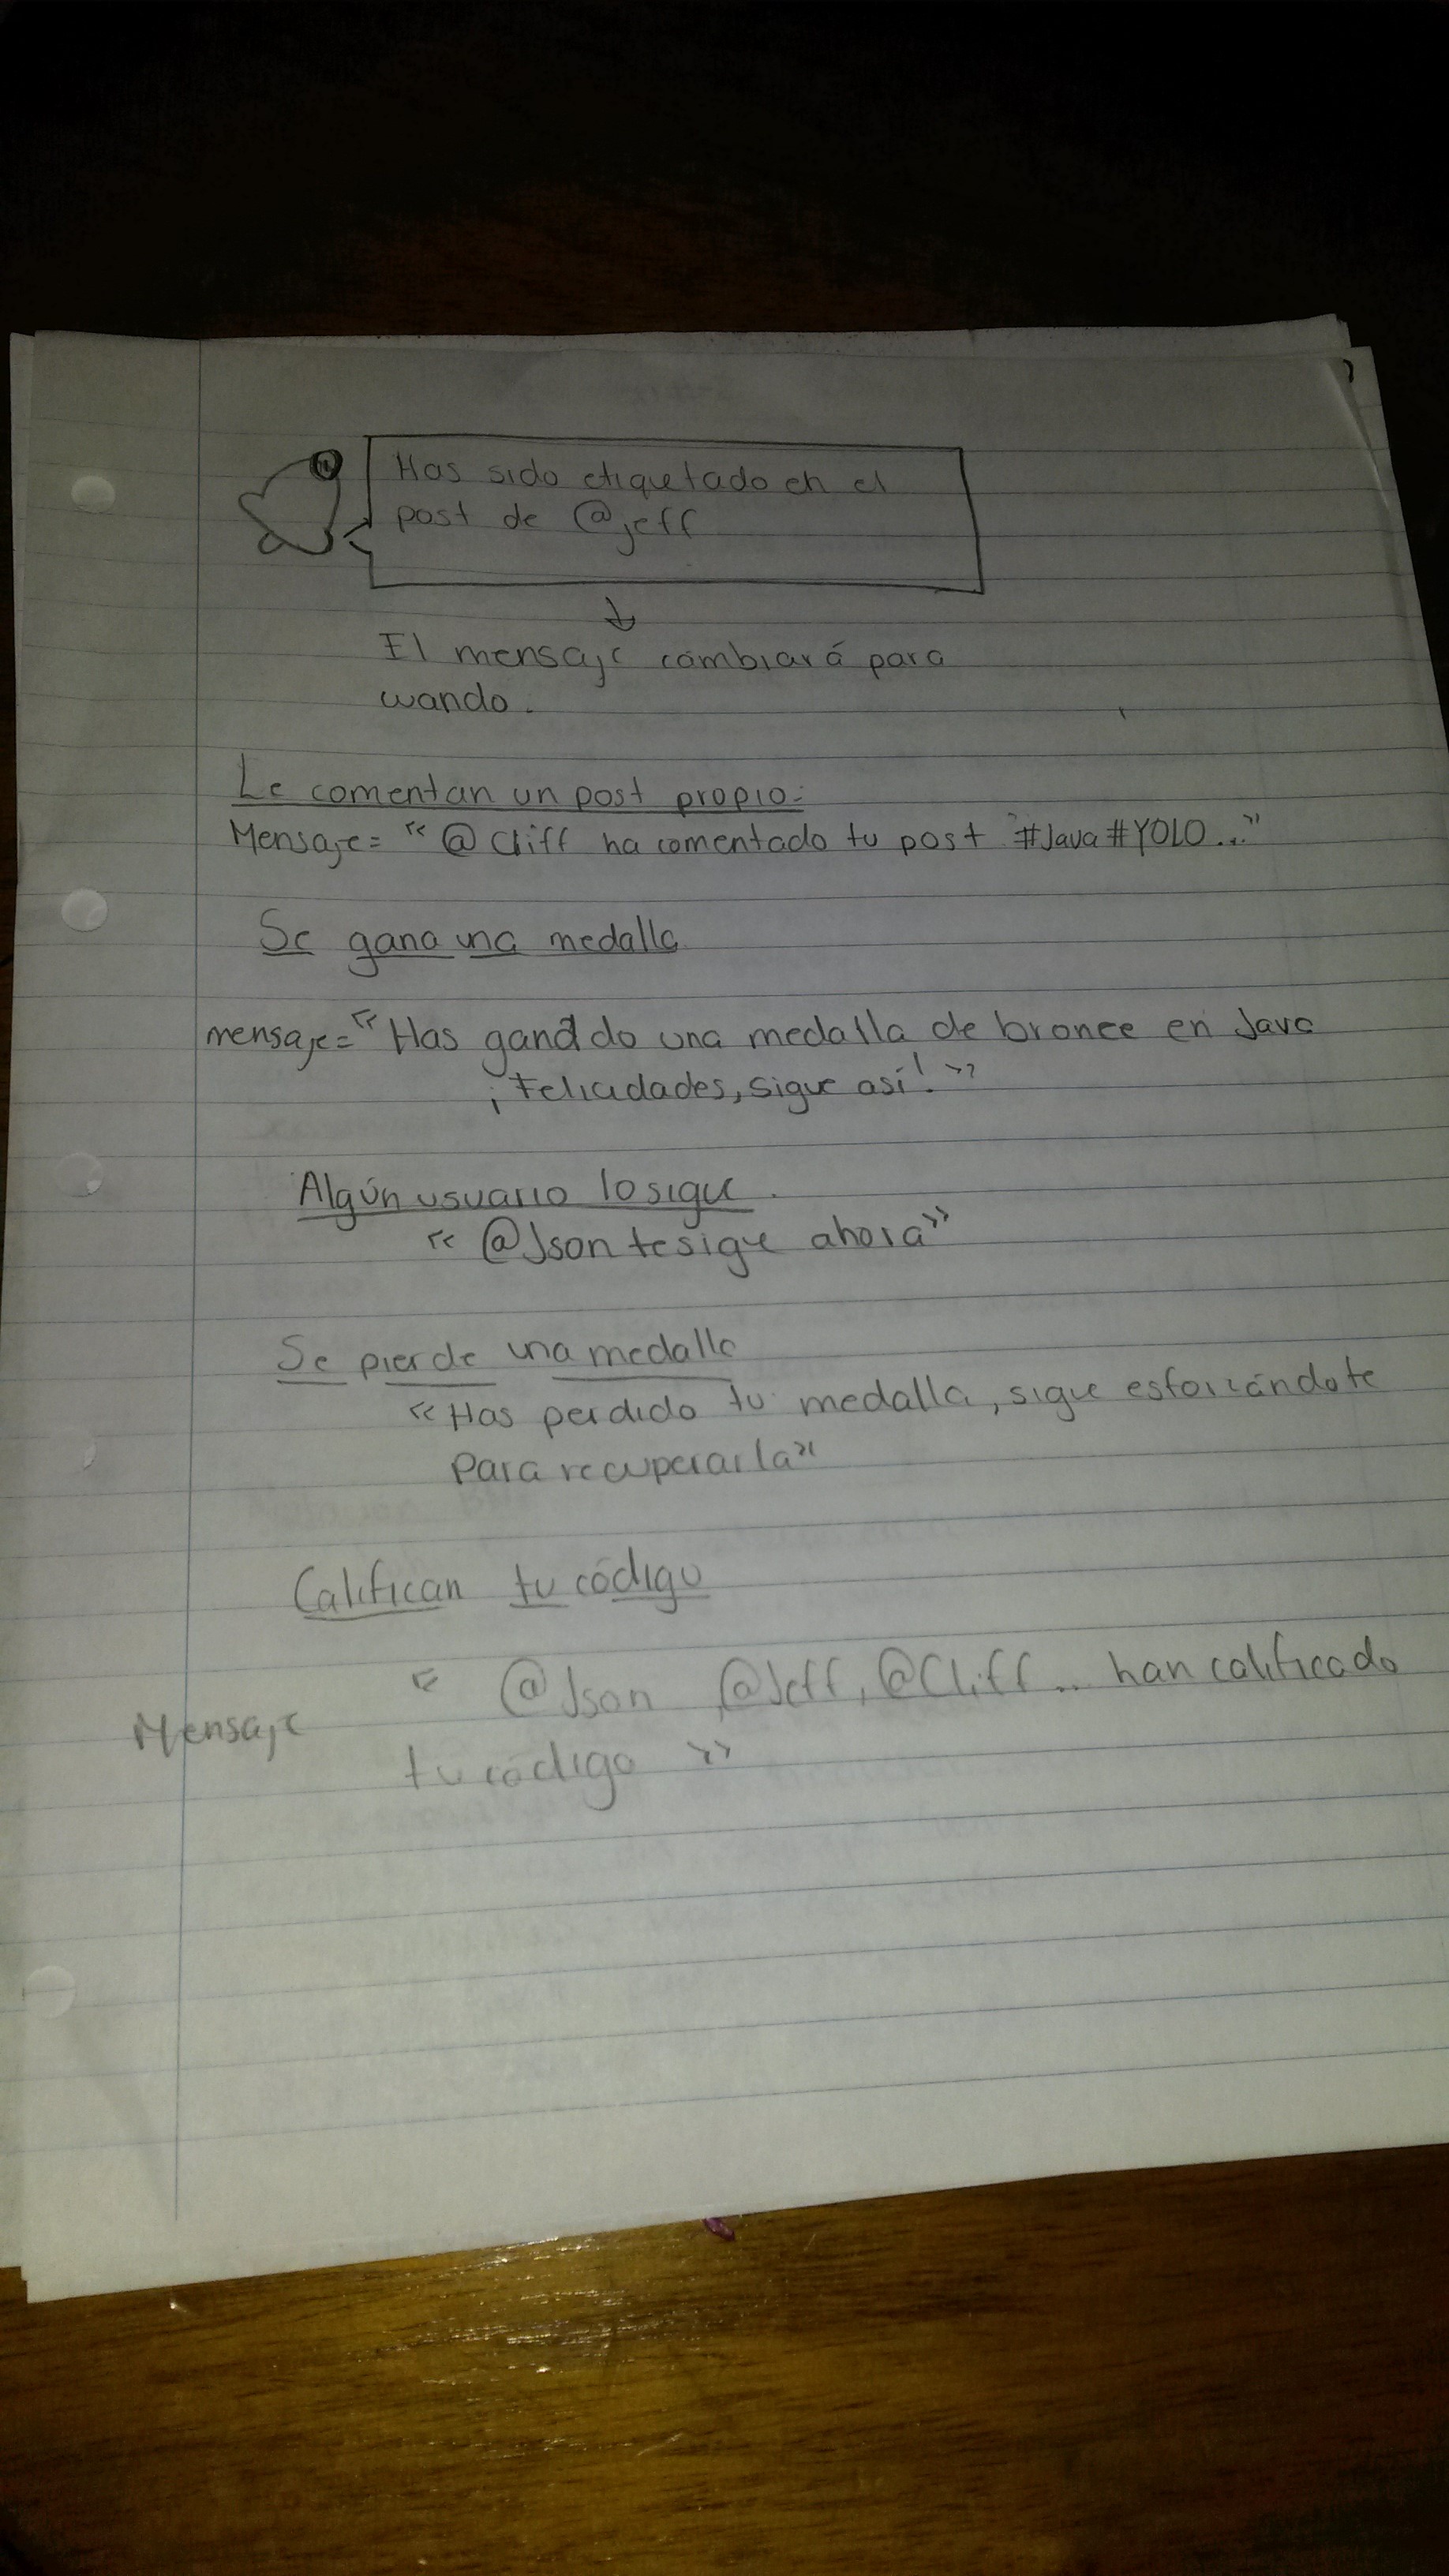 Has sido etiquetado en el
post de @jeff
El mensaje cambiará para
cuando.
Le comentan un post propio:
Mensaje = "@Cliff ha comentado tu post #Java#YOLO..."
Se gana una medalla
mensaje = "Has ganado una medalla de bronce en Java
¡Felicidades, sigue así!"
Algún usuario lo sigue.
"@Json te sigue ahora"
Se pierde una medalla
"Has perdido tu medalla, sigue esforzándote
para recuperarla"
Califican tu código
" @Json, @Jeff, @Cliff... han calificado
Mensaje
tu código "